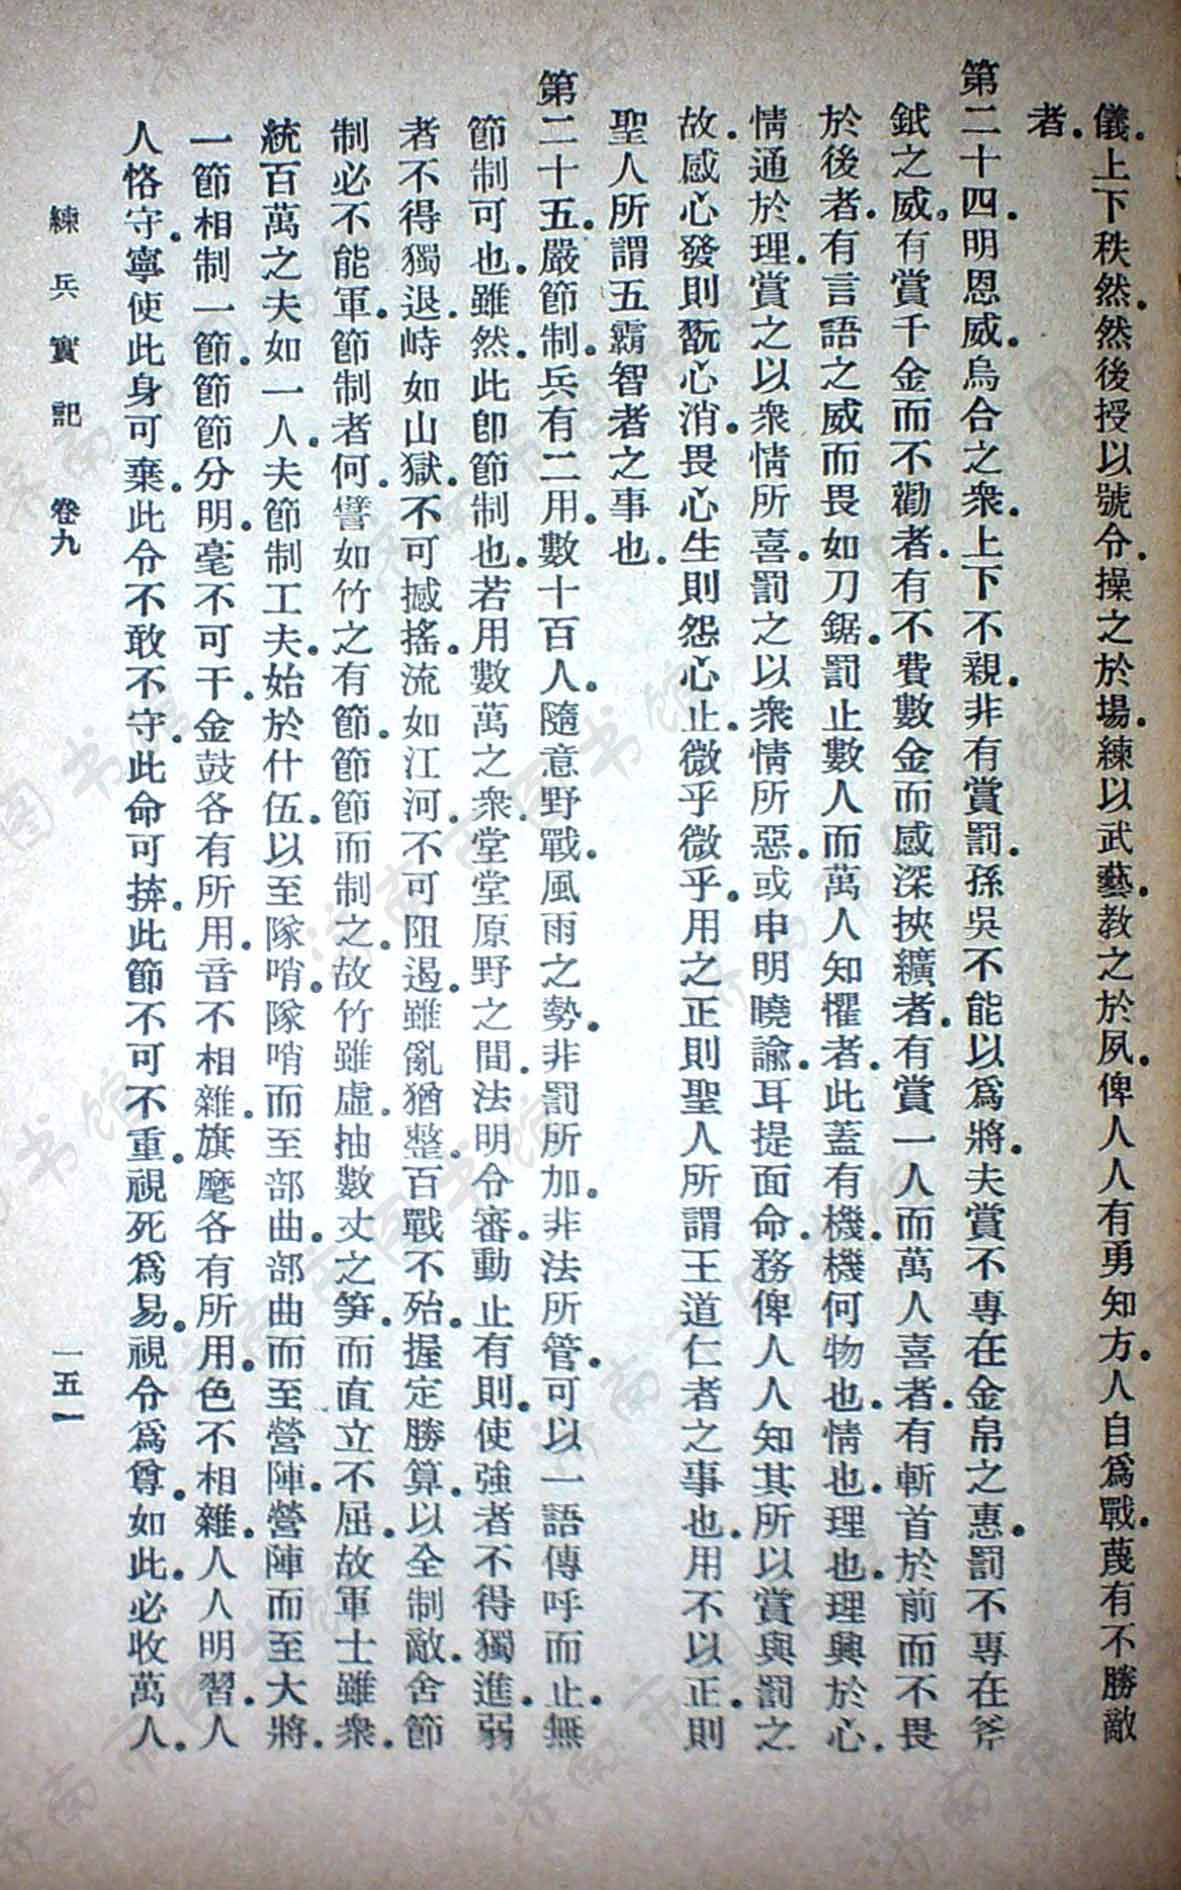 儀.上下秩然.然後授以號令.操之於場.練以武藝.教之於夙.俾人人有勇知方.人自爲戰.蔑有不勝敵
者.
第二十四.明恩威.烏合之衆.上下不親.非有賞罰.孫吳不能以爲將.夫賞不專在金帛之惠.罰不專在斧
鉞之威.有賞千金而不勸者.有不費數金而感深挾纊者.有賞一人而萬人喜者.有斬首於前而不畏
於後者.有言語之威而畏如刀鋸.罰止數人而萬人知懼者.此蓋有機.機何物也.情也.理也.理興於心.
情通於理.賞之以衆情所喜.罰之以衆情所惡.或申明曉諭.耳提面命.務俾人人知其所以賞與罰之
故.感心發則翫心消.畏心生則怨心止.微乎微乎.用之正則聖人所謂王道仁者之事也.用不以正.則
聖人所謂五霸智者之事也.
第二十五.嚴節制.兵有二用.數十百人.隨意野戰.風雨之勢.非罰所加.非法所管.可以一語傳呼而止.無
節制可也.雖然.此卽節制也.若用數萬之衆.堂堂原野之間.法明令審.動止有則.使強者不得獨進.弱
者不得獨退.峙如山獄.不可撼搖.流如江河.不可阻遏.雖亂猶整.百戰不殆.握定勝算.以全制敵.舍節
制必不能軍.節制者何.譬如竹之有節.節節而制之.故竹雖虛.抽數丈之筍.而直立不屈.故軍士雖衆.
統百萬之夫如一人.夫節制工夫.始於什伍.以至隊哨.隊哨而至部曲.部曲而至營陣.營陣而至大將.
一節相制一節.節節分明.毫不可干.金鼓各有所用.音不相雜.旗麾各有所用.色不相雜.人人明習.人
人恪守.寧使此身可棄.此令不敢不守.此命可捹.此節不可不重.視死爲易.視令爲尊.如此.必收萬人.
練兵實記 卷九 一五一